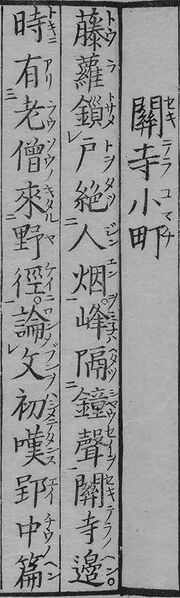 關寺小町
藤蘿鎖戸絶人烟。峰隔鐘聲關寺邉。
時有老僧來野徑。論文初嘆郢中篇